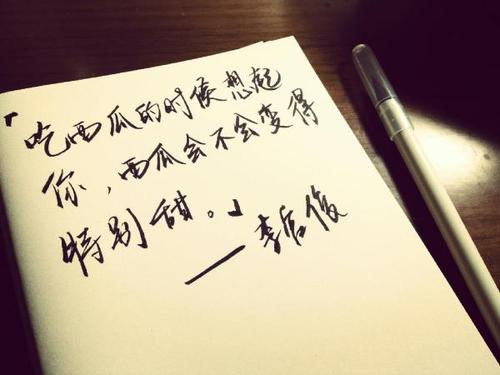 「吃西瓜的时候想起
你，西瓜会不会变得
特别甜。」
——李哲俊